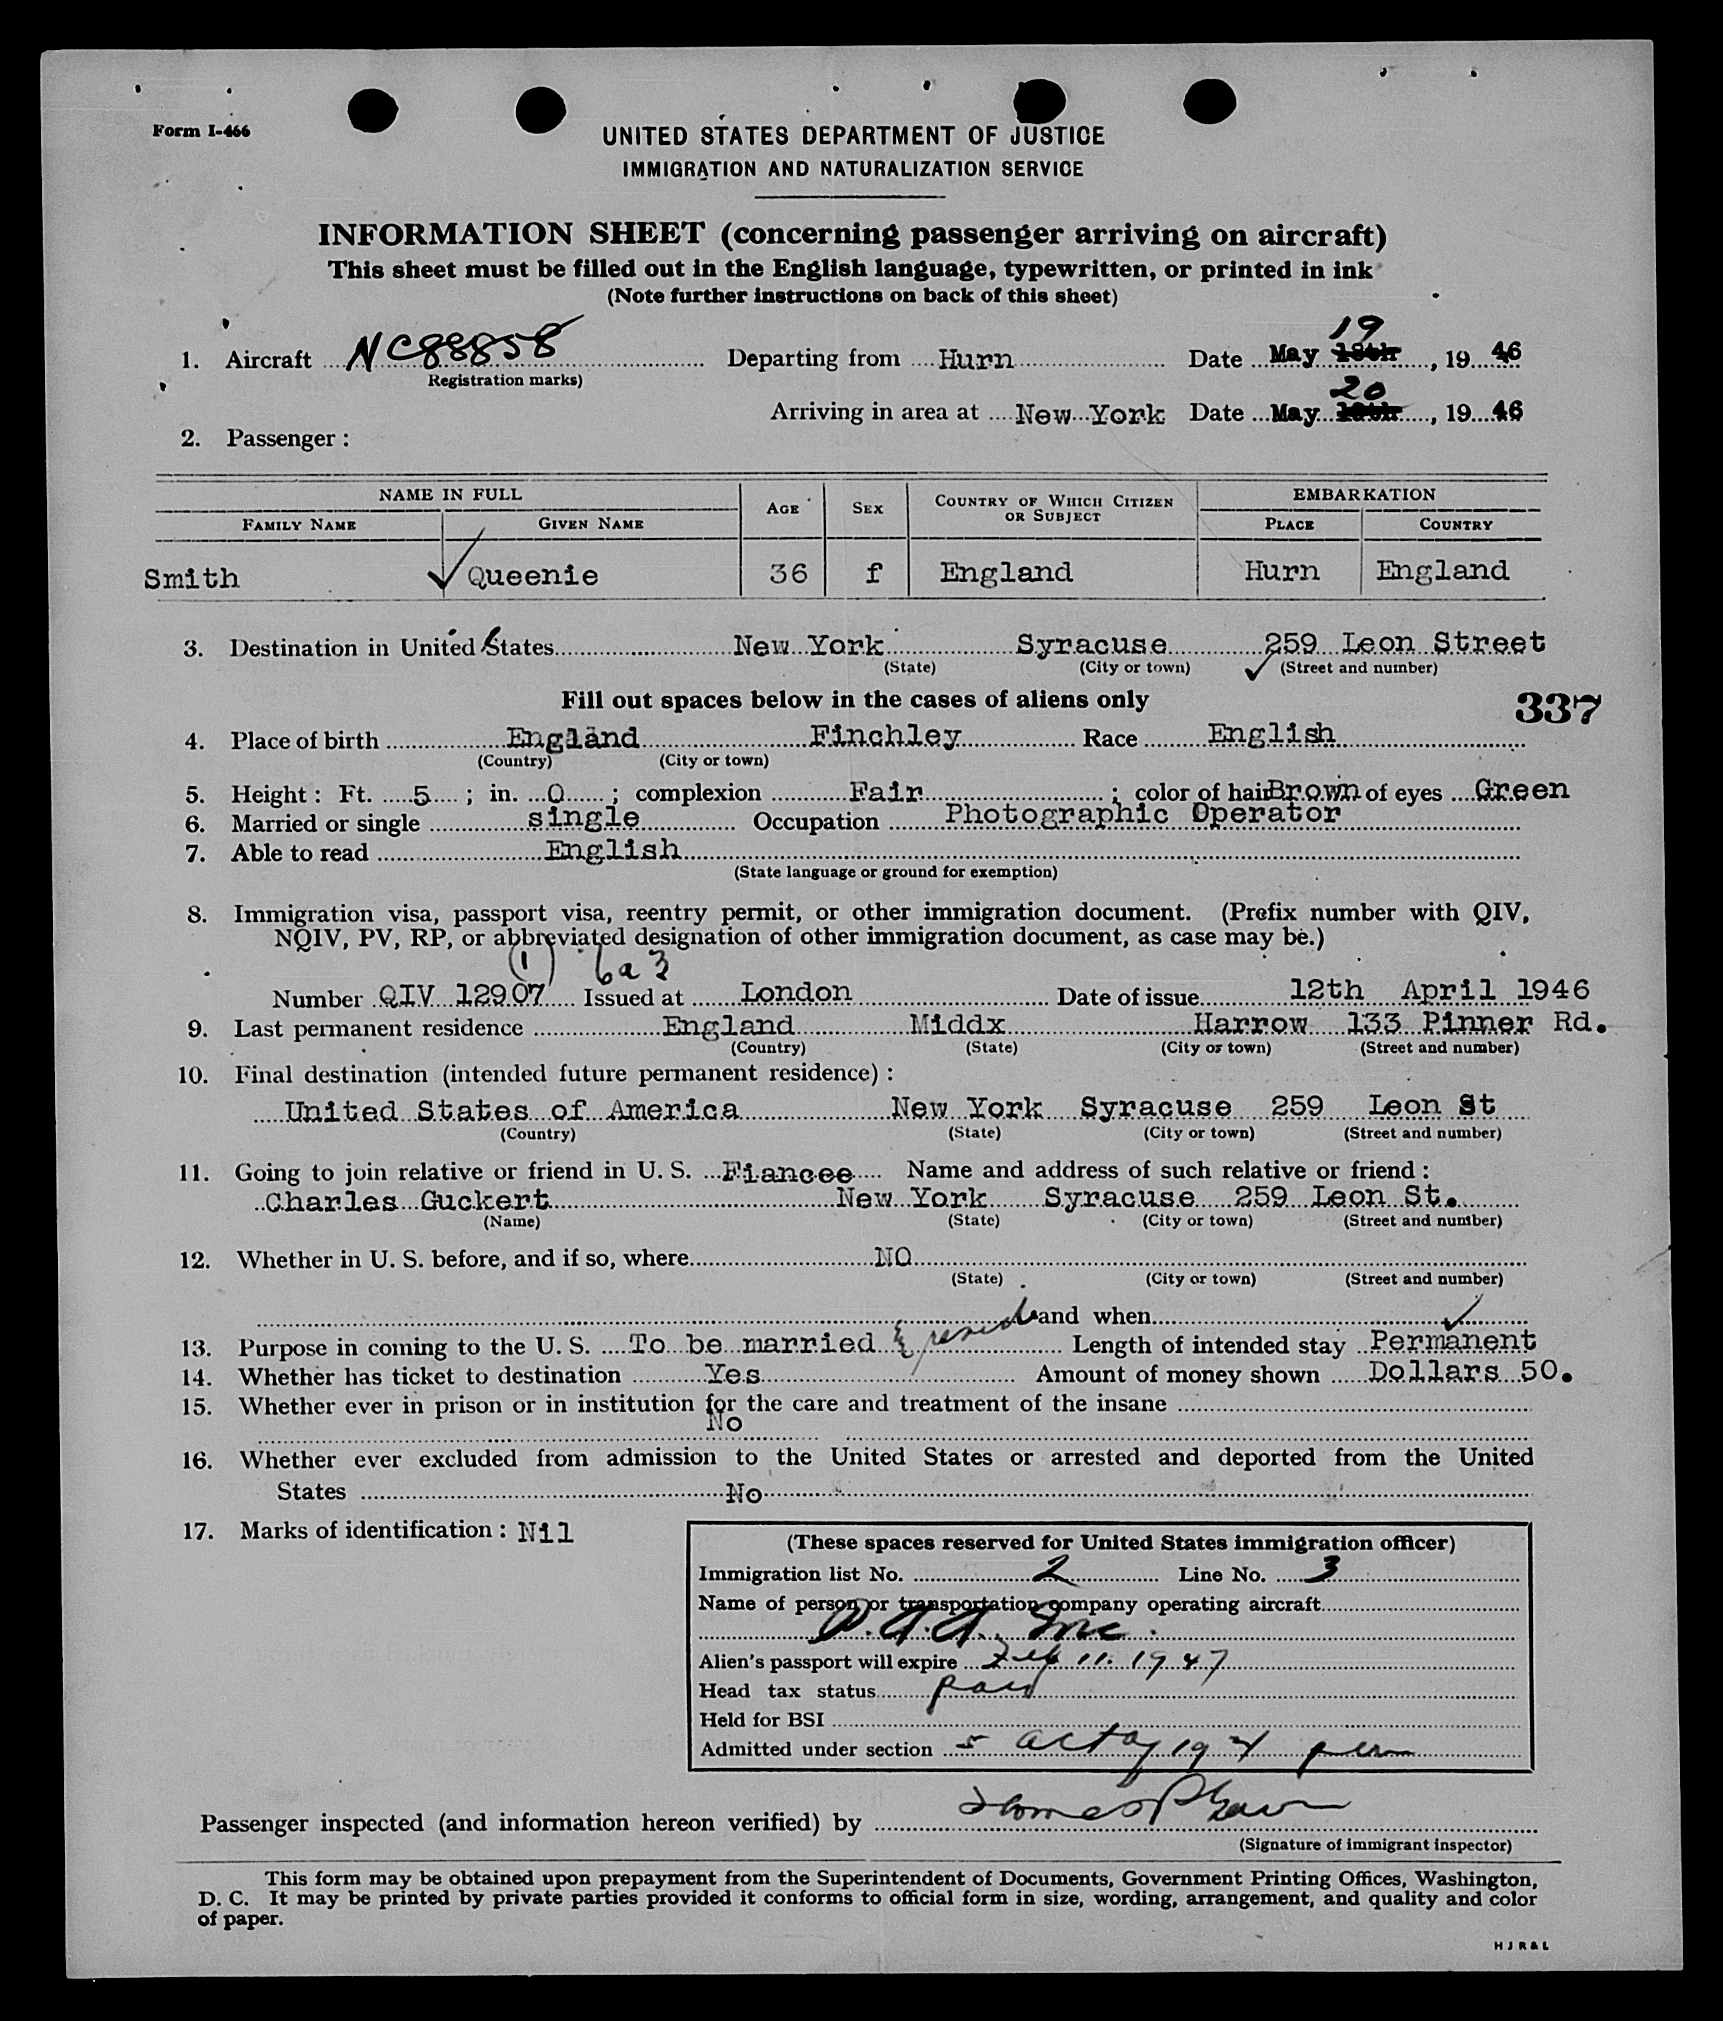 Form I-466
UNITED STATES DEPARTMENT OF JUSTICE
IMMIGRATION AND NATURALIZATION SERVICE
INFORMATION SHEET (concerning passenger arriving on aircraft)
This sheet must be filled out in the English language, typewritten, or printed in ink
(Note further instructions on back of this sheet)
19
1. Aircraft NC88858 Departing from Hurn Date May 18th, 19 46
(Registration marks)
20
Arriving in area at New York Date May 19th, 19 46
2. Passenger:
NAME IN FULL AGE SEX COUNTRY OF WHICH CITIZEN OR SUBJECT EMBARKATION
FAMILY NAME GIVEN NAME PLACE COUNTRY
Smith Queenie 36 f England Hurn England
3. Destination in United States New York Syracuse 259 Leon Street
(State) (City or town) (Street and number)
Fill out spaces below in the cases of aliens only
337
4. Place of birth England Finchley Race English
(Country) (City or town)
5. Height: Ft. 5; in. 0; complexion Fair; color of hair Brown of eyes Green
6. Married or single single Occupation Photographic Operator
7. Able to read English
(State language or ground for exemption)
8. Immigration visa, passport visa, reentry permit, or other immigration document. (Prefix number with QIV,
NQIV, PV, RP, or abbreviated designation of other immigration document, as case may be.)
(1) 6a3
Number QIV 12907 Issued at London Date of issue 12th April 1946
9. Last permanent residence England Middx Harrow 133 Pinner Rd.
(Country) (State) (City or town) (Street and number)
10. Final destination (intended future permanent residence):
United States of America New York Syracuse 259 Leon St
(Country) (State) (City or town) (Street and number)
11. Going to join relative or friend in U. S. Fiancee Name and address of such relative or friend:
Charles Guckert New York Syracuse 259 Leon St.
(Name) (State) (City or town) (Street and number)
12. Whether in U. S. before, and if so, where NO
(State) (City or town) (Street and number)
and when
13. Purpose in coming to the U. S. To be married & reside Length of intended stay Permanent
14. Whether has ticket to destination Yes Amount of money shown Dollars 50.
15. Whether ever in prison or in institution for the care and treatment of the insane
No
16. Whether ever excluded from admission to the United States or arrested and deported from the United
States No
17. Marks of identification: Nil
(These spaces reserved for United States immigration officer)
Immigration list No. 2 Line No. 3
Name of person or transportation company operating aircraft
P.A.A. Inc.
Alien's passport will expire Feb 11. 1947
Head tax status paid
Held for BSI
Admitted under section 5 act of 1924 perm
Passenger inspected (and information hereon verified) by
(Signature of immigrant inspector)
This form may be obtained upon prepayment from the Superintendent of Documents, Government Printing Offices, Washington,
D. C. It may be printed by private parties provided it conforms to official form in size, wording, arrangement, and quality and color
of paper.
H J R & L